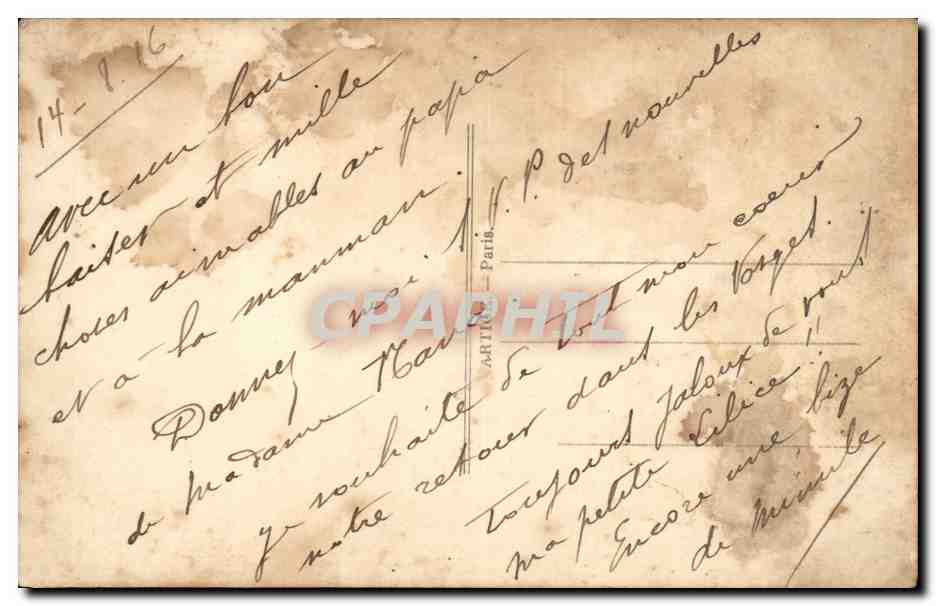 14-8.16
avec un bon
baiser et mille
choses aimables au papa
et à la manman.
Donnez moi. S. V. P. des nouvelles
de Madame
je souhaite de tout mon coeur
notre retour dans les Vosges.
Toujours jaloux de vous
ma petite Lilice!!
Encore une bize
de Mimile
ARTIGE — Paris.
CPAPHIL